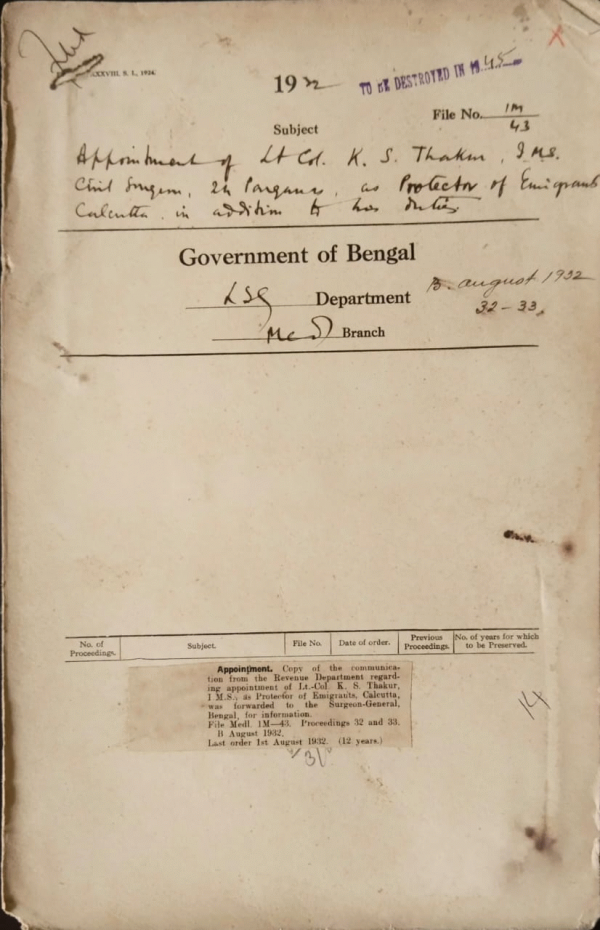 XXXVIII. S. L., 1924.
1932
TO BE DESTROYED IN 1945
File No. 1M/43
Subject
Appointment of Lt Col. K. S. Thakur, I.M.S.
Civil Surgeon, 24 Parganas, as Protector of Emigrants
Calcutta in addition to his duties
Government of Bengal
LSG Department
B. August 1932
32-33.
Medl Branch
No. of Proceedings.
Subject.
File No.
Date of order.
Previous Proceedings.
No. of years for which to be Preserved.
Appointment. Copy of the communica-
tion from the Revenue Department regard-
ing appointment of Lt.-Col. K. S. Thakur,
I M.S., as Protector of Emigrants, Calcutta,
was forwarded to the Surgeon-General,
Bengal, for information.
File Medl. 1M—43. Proceedings 32 and 33.
B August 1932.
Last order 1st August 1932. (12 years.)
31
14